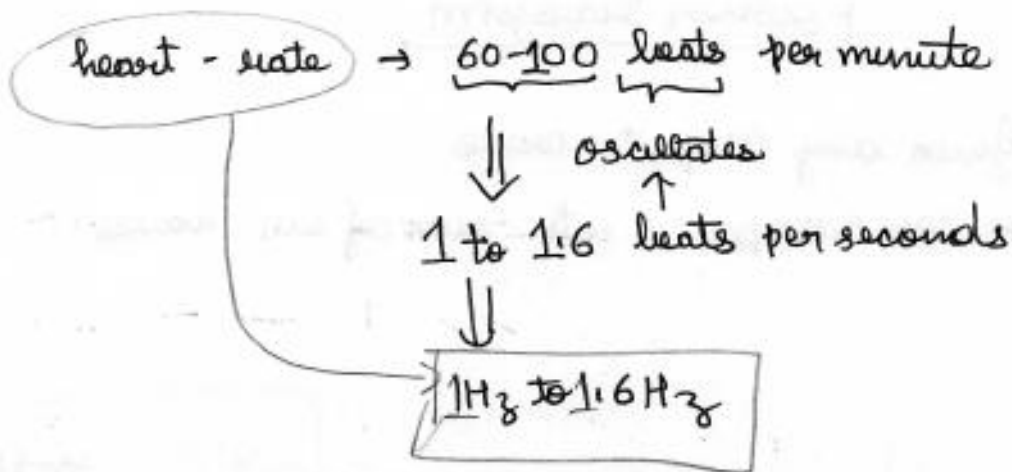 heart - rate → 60-100 beats per minute
oscillates
1 to 1.6 beats per seconds
1Hz to 1.6Hz